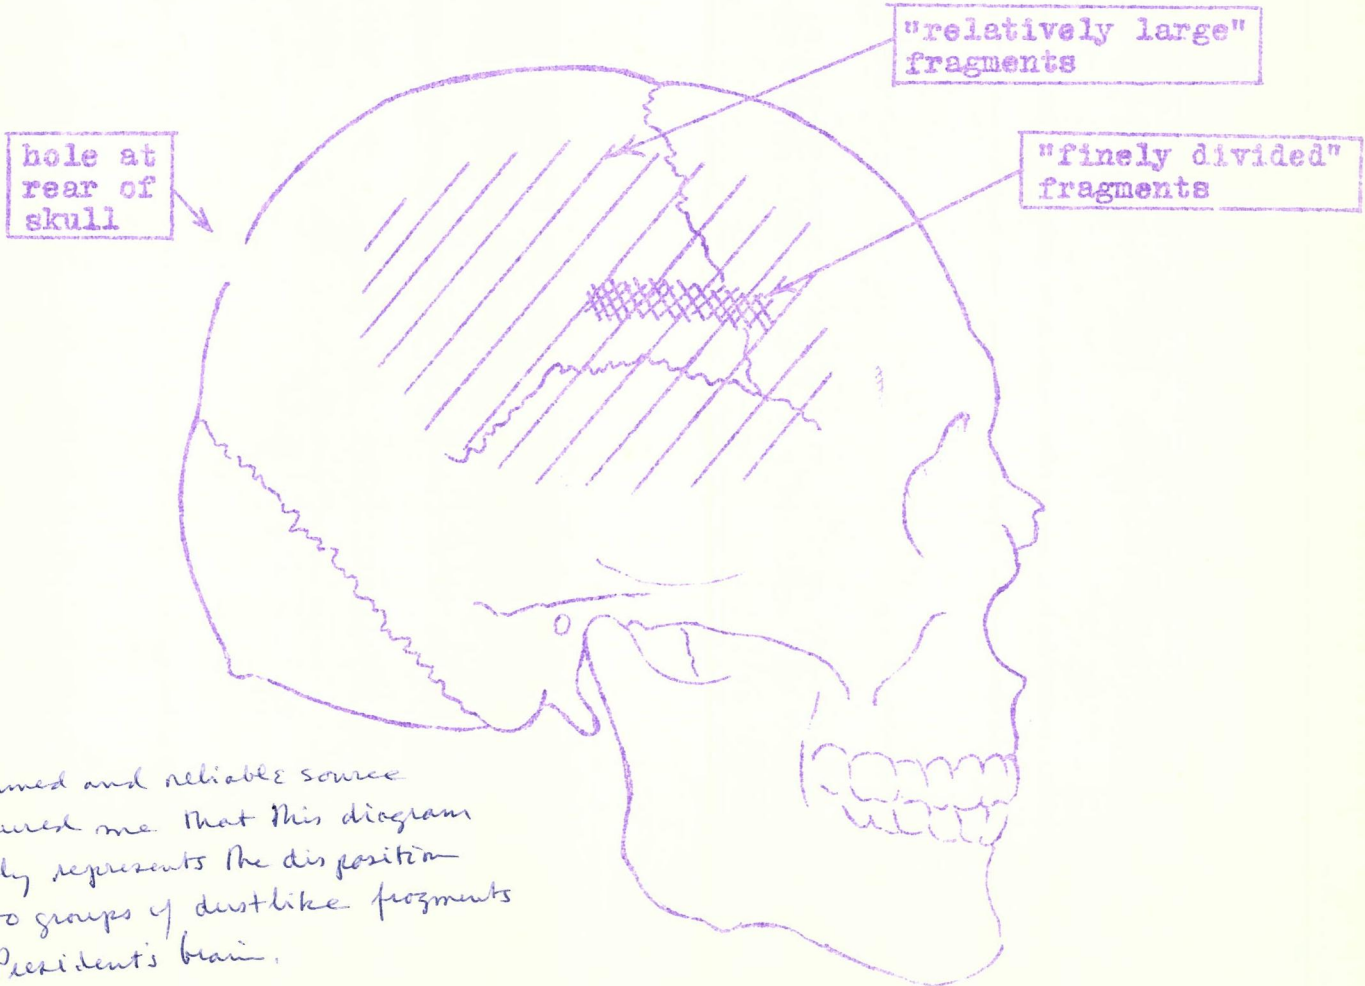 "relatively large"
fragments
hole at
rear of
skull
"finely divided"
fragments
and reliable source
me that this diagram
represents the disposition
groups of dustlike fragments
President's brain.